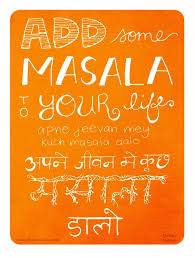 ADD some
MASALA
TO YOUR life
apne jeevan mey
kuch masala dalo
अपने जीवन में कुछ
मसाला
डालो